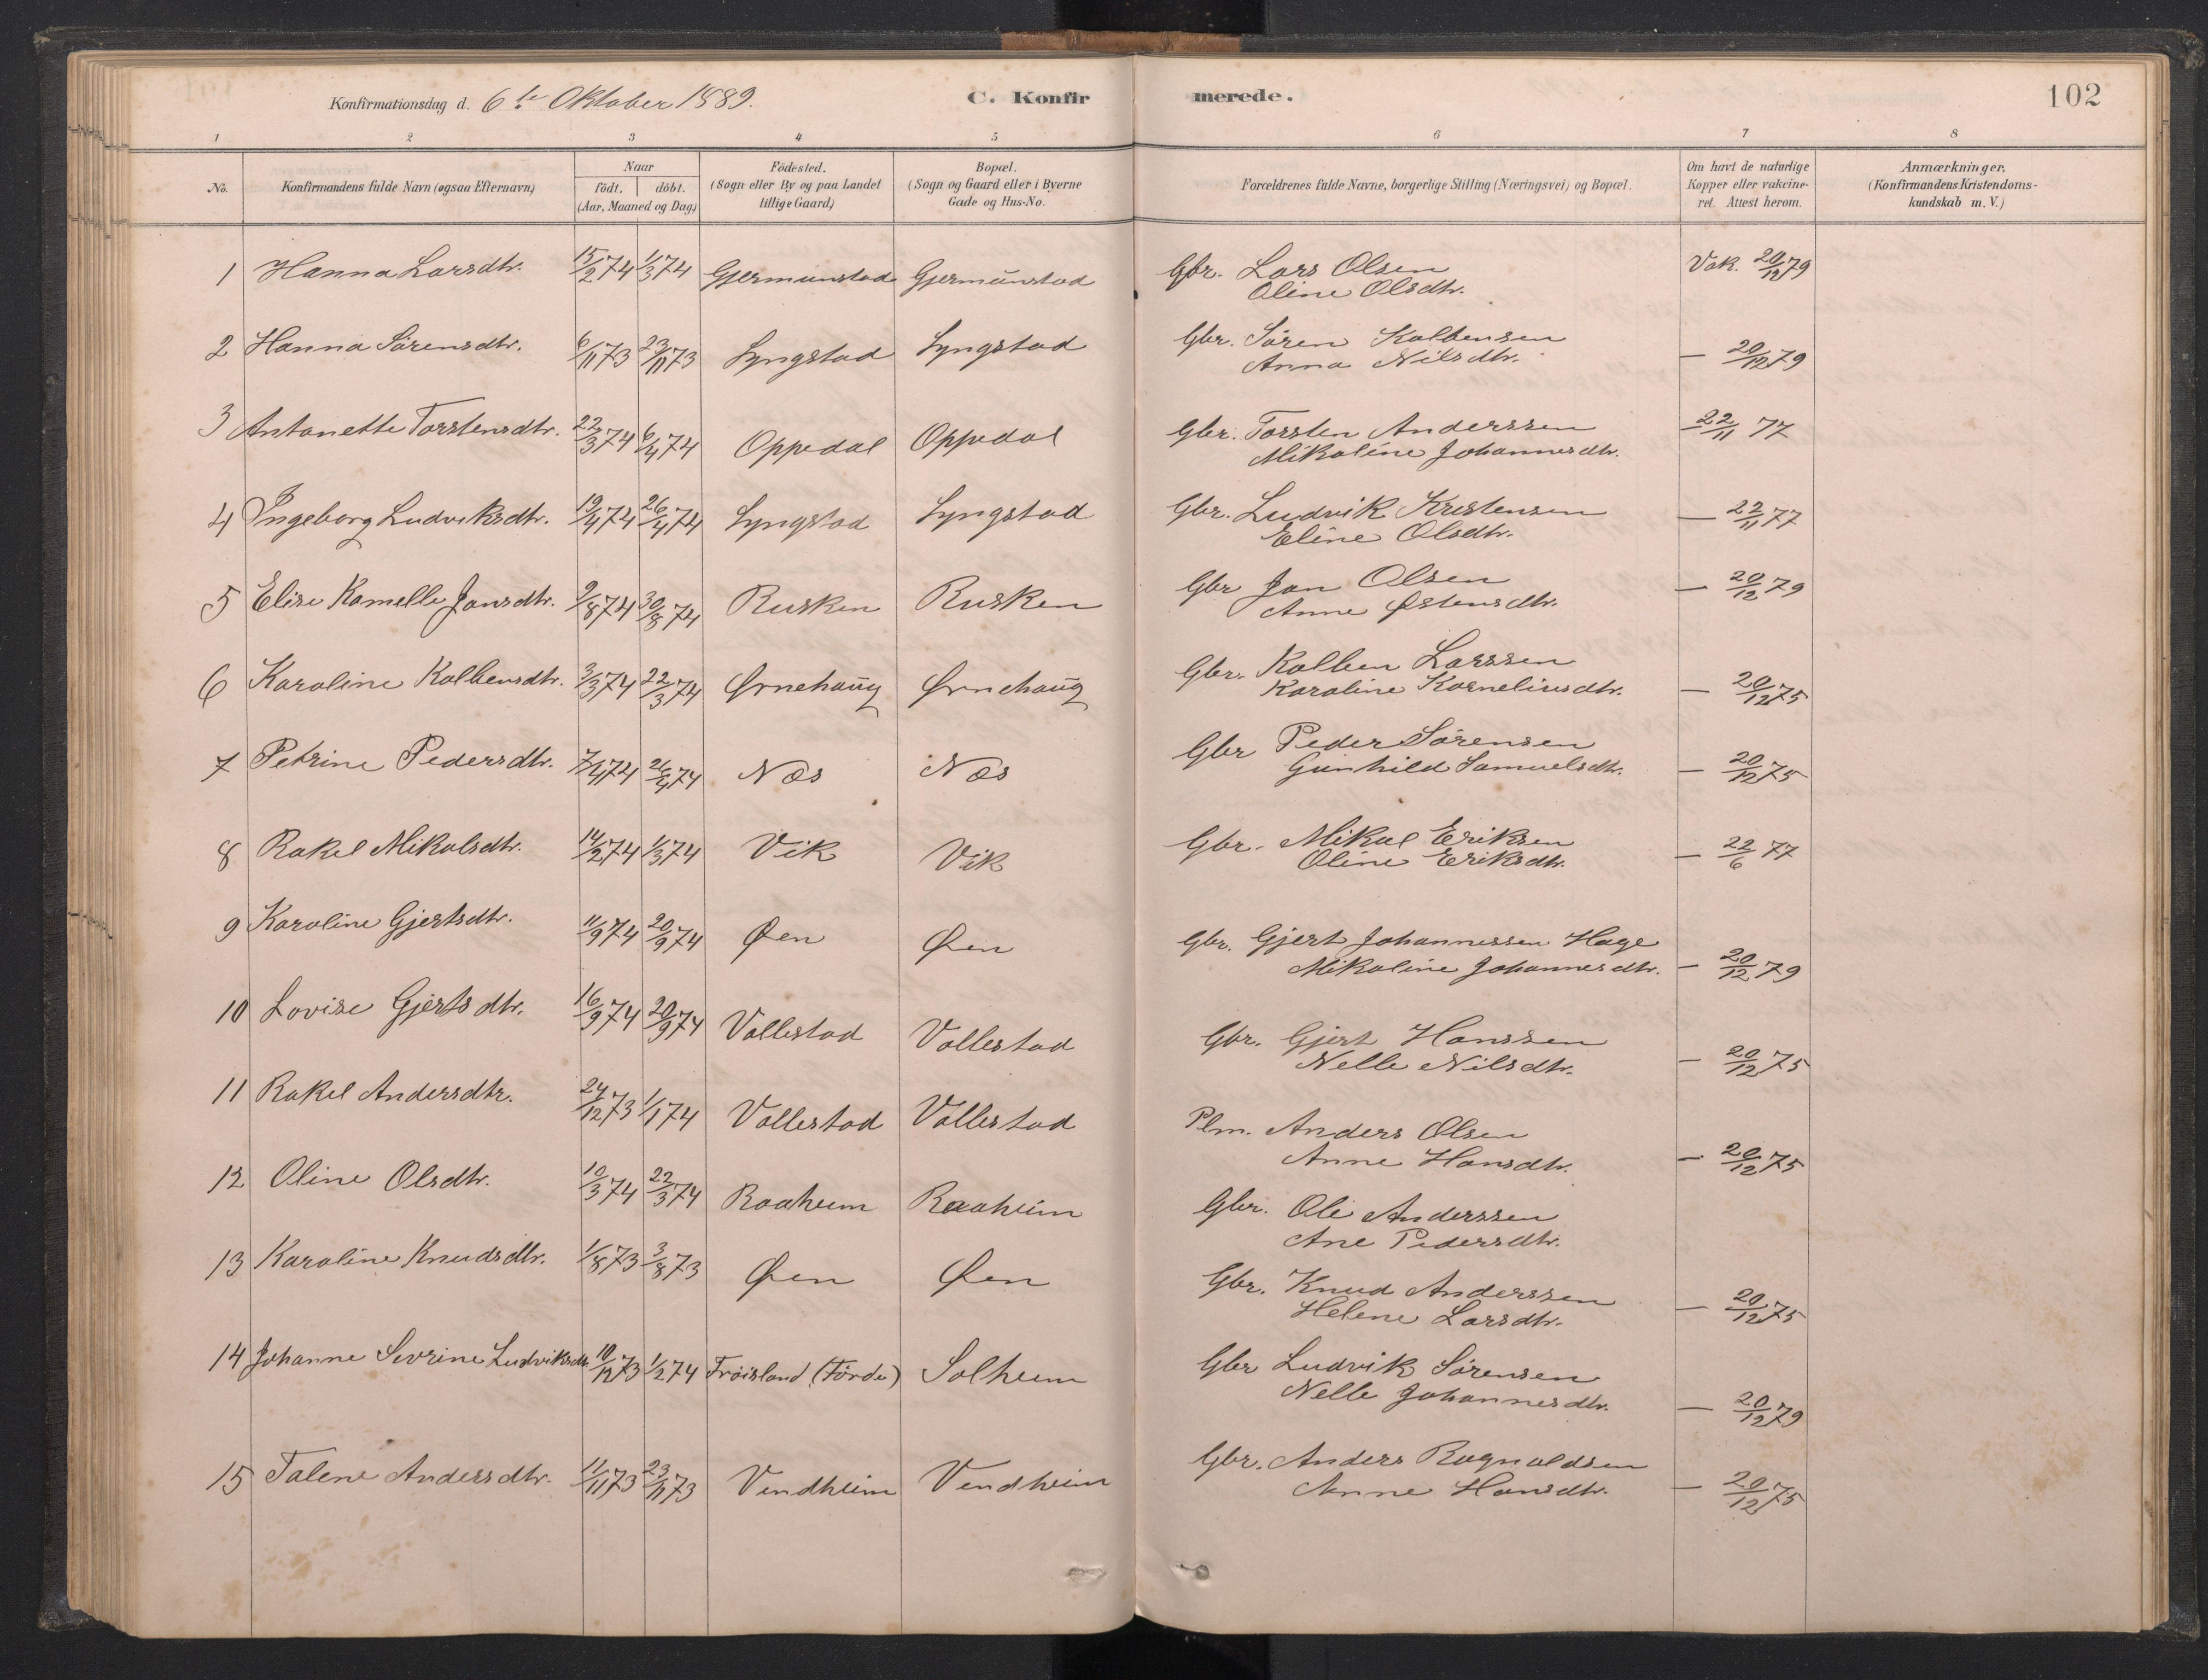 Konfirmationsdag d. 6te Oktober 1889. C. Konfirmerede. 102
1 2 3 4 5 6 7 8
No. Konfirmandens fulde Navn (ogsaa Efternavn) Naar födt. döbt. (Aar, Maaned og Dag.) Födested. (Sogn eller By og paa Landet tillige Gaard) Bopæl. (Sogn og Gaard eller i Byerne Gade og Hus-No. Forældrenes fulde Navne, borgerlige Stilling (Næringsvei) og Bopæl. Om havt de naturlige Kopper eller vakcineret. Attest herom. Anmærkninger. (Konfirmandens Kristendomskundskab m. V.)
1 Hanna Larsdtr. 15/2 74 1/3 74 Gjermunstad Gjermunstad Gbr. Lars Olsen Vak. 20/12 79
Oline Olsdtr.
2 Hanna Sörensdtr. 6/11 73 23/11 73 Lyngstad Lyngstad Gbr. Sören Kolbensen
Anna Nilsdtr. — 20/12 79
3 Antonette Torstensdtr. 22/3 74 6/4 74 Oppedal Oppedal Gbr. Torsten Anderssen — 22/11 77
Mikaline Johannesdtr.
4 Ingeborg Ludviksdtr. 19/4 74 26/4 74 Lyngstad Lyngstad Gbr. Ludvik Kristensen — 22/11 77
Eline Olsdtr.
5 Elise Kamelle Jansdtr. 9/8 74 30/8 74 Rusken Rusken Gbr Jan Olsen — 20/12 79
Anne Østensdtr.
6 Karoline Kolbensdtr. 3/3 74 22/3 74 Ørnehaug Ørnehaug Gbr. Kolben Larssen
Karoline Korneliusdtr. — 20/12 75
7 Petrine Pedersdtr. 7/4 74 26/4 74 Næs Næs Gbr Peder Sörensen
Gunhild Samuelsdtr. — 20/12 75
8 Rakel Mikalsdtr. 14/2 74 1/3 74 Vik Vik Gbr. Mikal Eriksen
Oline Eriksdtr. — 22/6 77
9 Karoline Gjertsdtr. 11/9 74 20/9 74 Øen Øen Gbr. Gjert Johannessen Hage
Mikaline Johannesdtr. — 20/12 79
10 Lovise Gjertsdtr. 16/9 74 20/9 74 Vallestad Vallestad Gbr. Gjert Hanssen
Nelle Nilsdtr. — 20/12 75
11 Rakel Andersdtr. 24/12 73 1/1 74 Vallestad Vallestad Plm. Anders Olsen
Anne Hansdtr. — 20/12 75
12 Oline Olsdtr. 10/3 74 22/3 74 Raaheim Raaheim Gbr. Ole Anderssen
Ane Pedersdtr.
13 Karoline Knudsdtr. 1/8 73 3/8 73 Øen Øen Gbr. Knud Anderssen
Helene Larsdtr. — 20/12 75
14 Johanne Sevrine Ludviksdtr. 10/12 73 1/2 74 Fröisland (Förde) Solheim Gbr Ludvik Sörensen
Nelle Johannesdtr. — 20/12 79
15 Talene Andersdtr. 11/11 73 23/11 73 Vindheim Vindheim Gbr. Anders Ragnaldsen
Anne Hansdtr. — 20/12 75